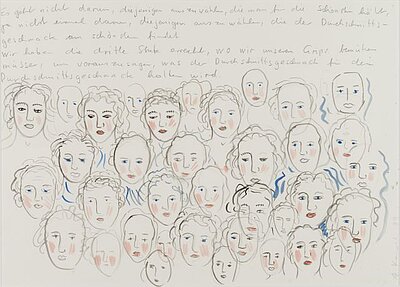 Es geht nicht darum, diejenigen auszuwählen, die man für die Schönsten hält,
ja nicht einmal darum, diejenigen auszuwählen, die der Durchschnitts-
geschmack am schönsten findet
wir haben die dritte Stufe erreicht, wo wir unseren Grips bemühen
müssen, um vorauszusagen, was der Durchschnittsgeschmack für den
Durchschnittsgeschmack halten wird.